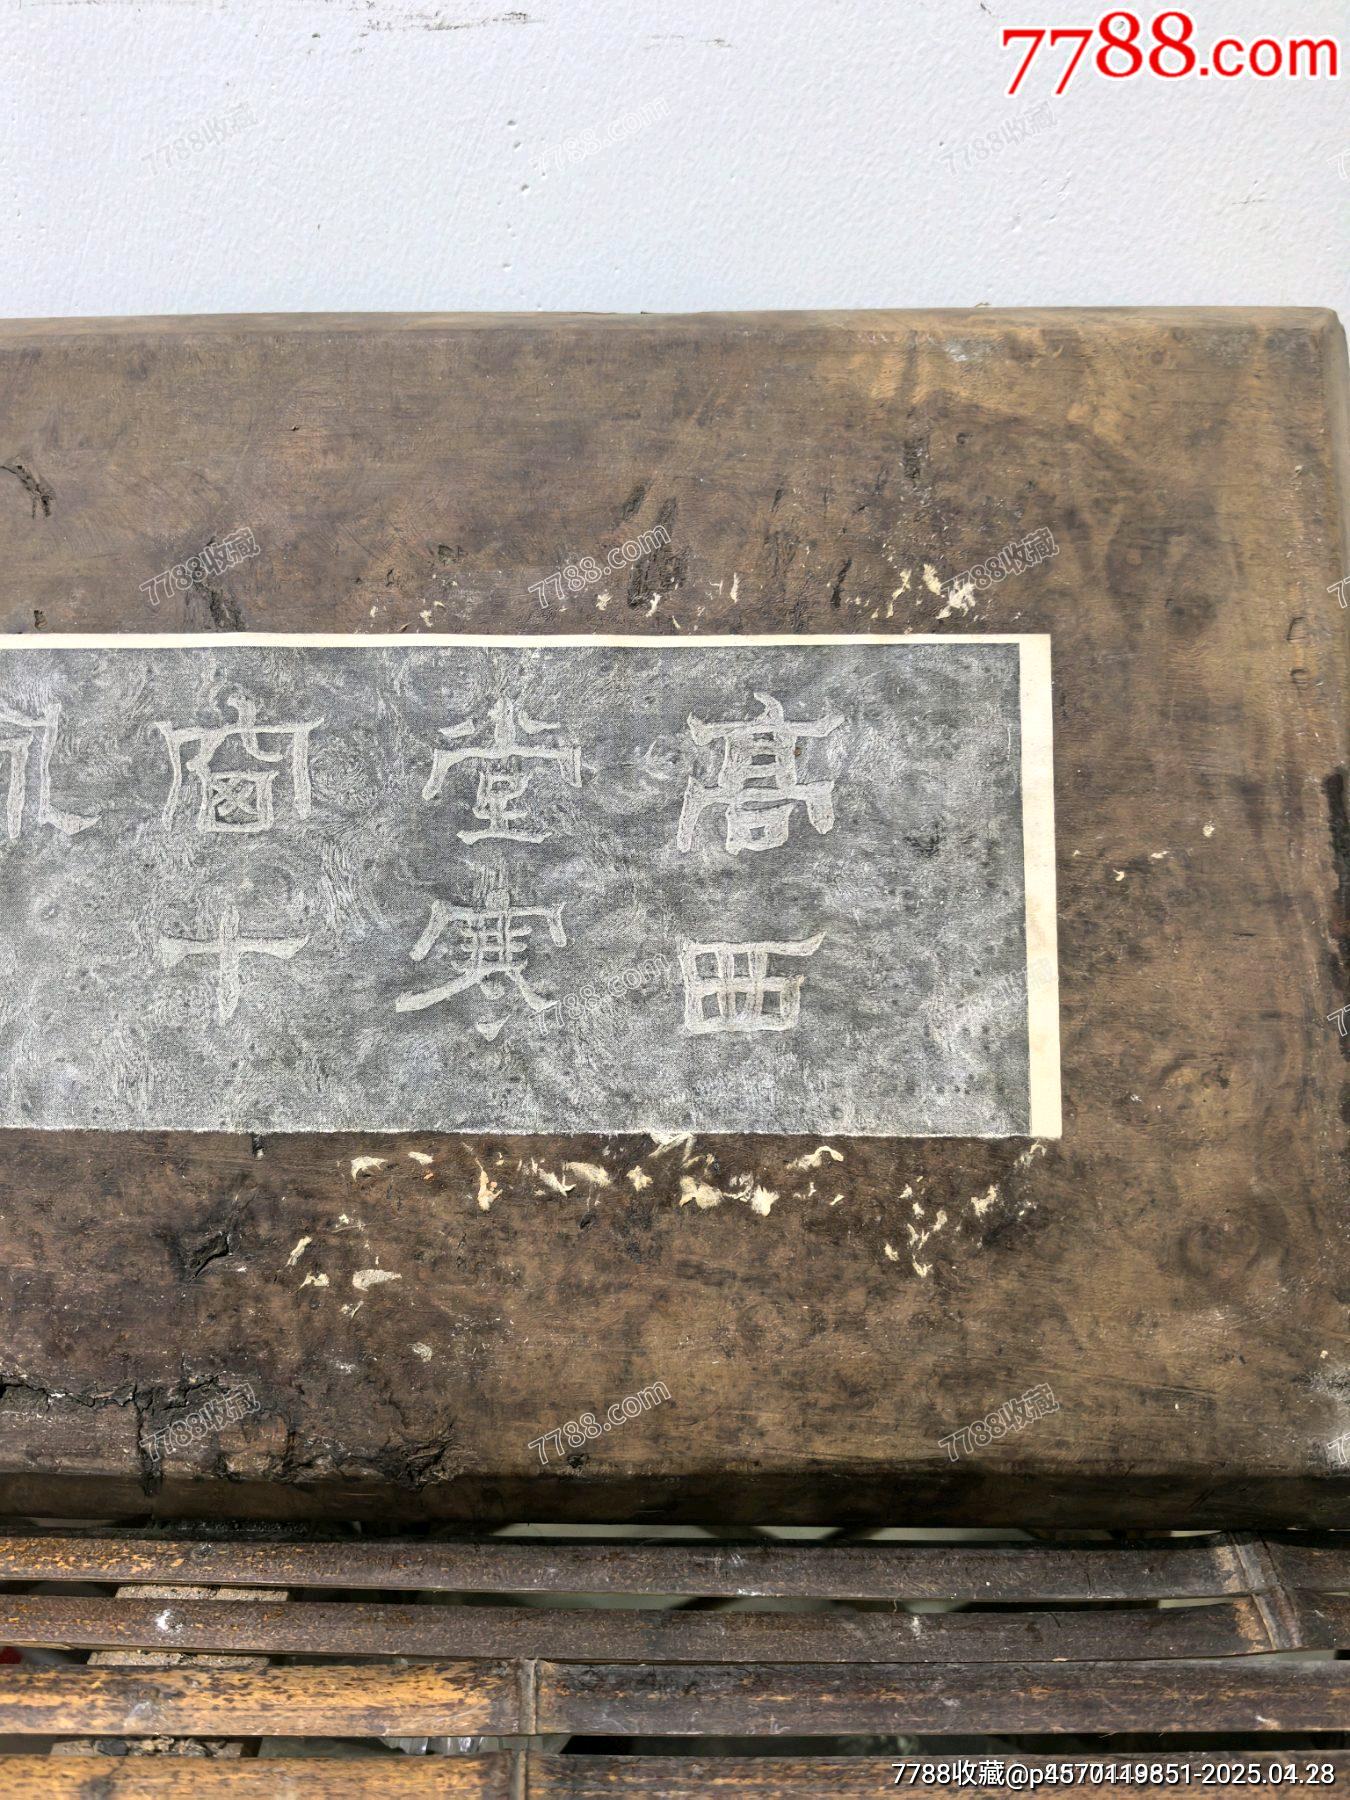 7788.com
髙西
堂寒
窗十
7788收藏
7788.com
7788收藏
7788收藏
7788.com
7788收藏
7788.com
7788收藏
7788.com
7788收藏